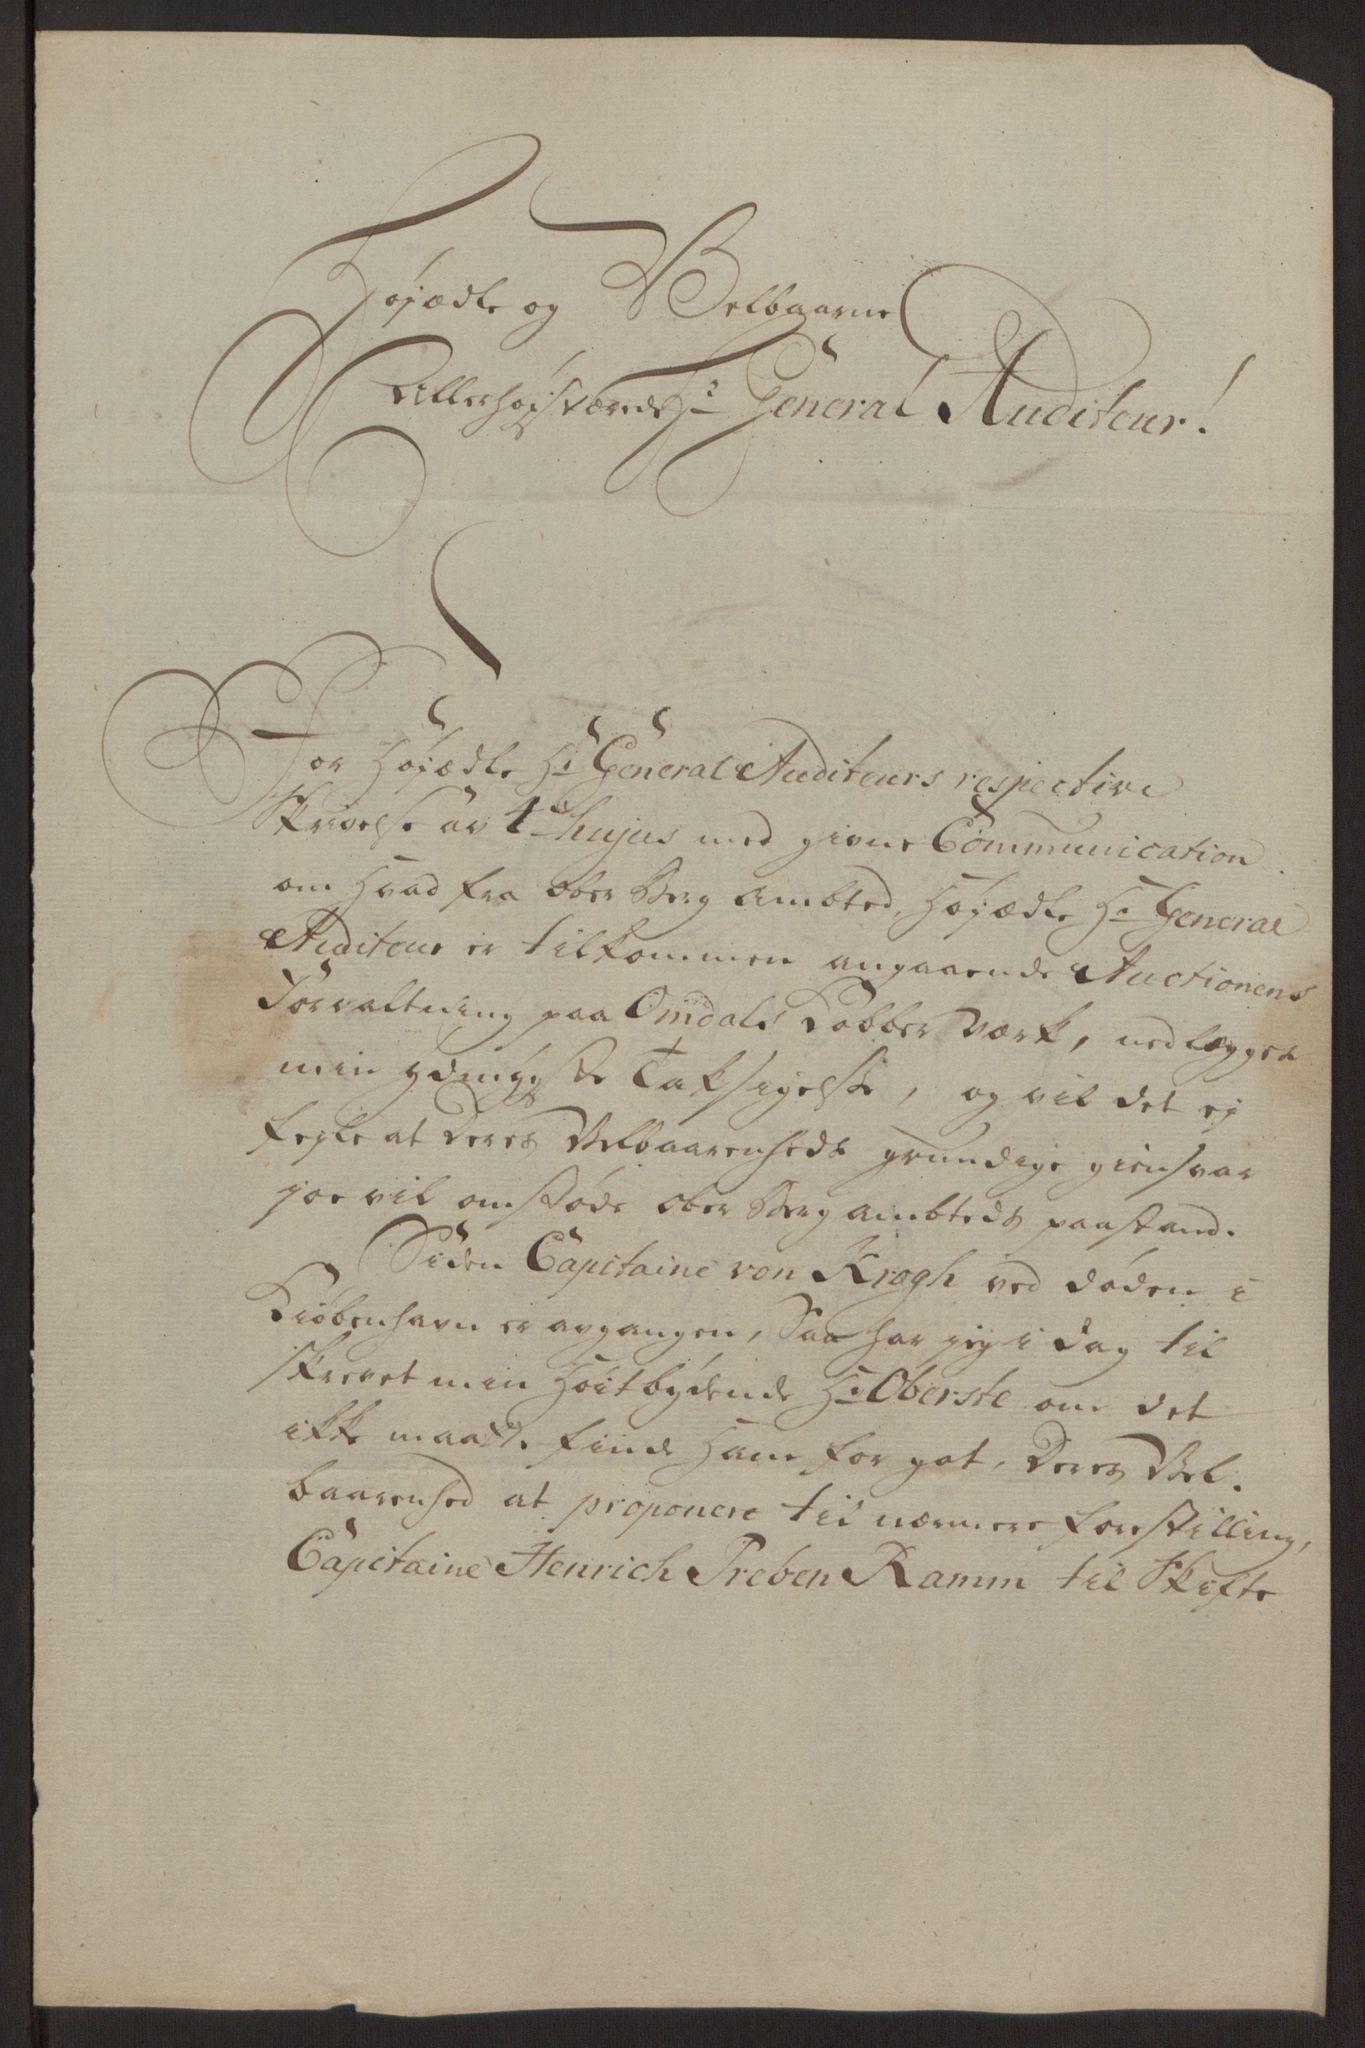 Højædle og Velbaarne
Allerhøystærede Hr General Auditeur!
For Højædle Hr General Auditeurs respective
Skrivelse av 4de hujus med givne Communication
om Hvad fra Ober Berg Ambted, Højædle Hr General
Auditeur er tilkommen angaaende Auctionens
Forvaltning paa Omdals Kobber Værk, nedlægger
min ydmygste Taksigelse, og vil det ej
fejle at Deres Velbaarenheds grundige giensvar
joe vil omstøde Ober Berg ambteds paastand.
Siden Capitaine von Krogh ved døden i
Kiøbenhavn er avgangen, Saa har jeg i dag til
skrevet min Høitbydende Hr Oberste om det
ikke maatte finde Ham for got, Deres Vel-
baarenhed at proponere til nærmere forestilling,
Capitaine Henrich Preben Ramm til Skifte